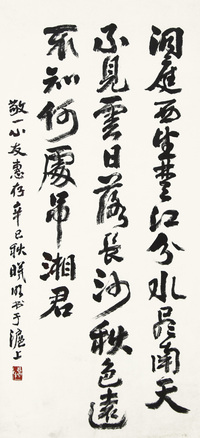 洞庭西望楚江分水尽南天
不見雲日落長沙秋色遠
不知何處吊湘君
敬一小友惠存辛巳秋暎周书于滬上